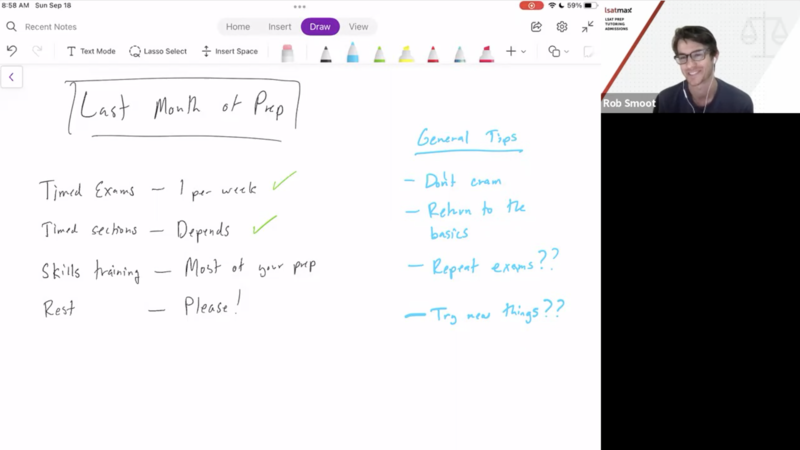 8:58 AM Sun Sep 18
59%
Recent Notes
Home Insert Draw View
Text Mode Lasso Select Insert Space
Last Month of Prep
Timed Exams — 1 per week
Timed sections — Depends
Skills training — Most of your prep
Rest — Please!
General Tips
— Don't cram
— Return to the
basics
— Repeat exams??
— Try new things??
lsatmax
LSAT PREP
TUTORING
ADMISSIONS
Rob Smoot